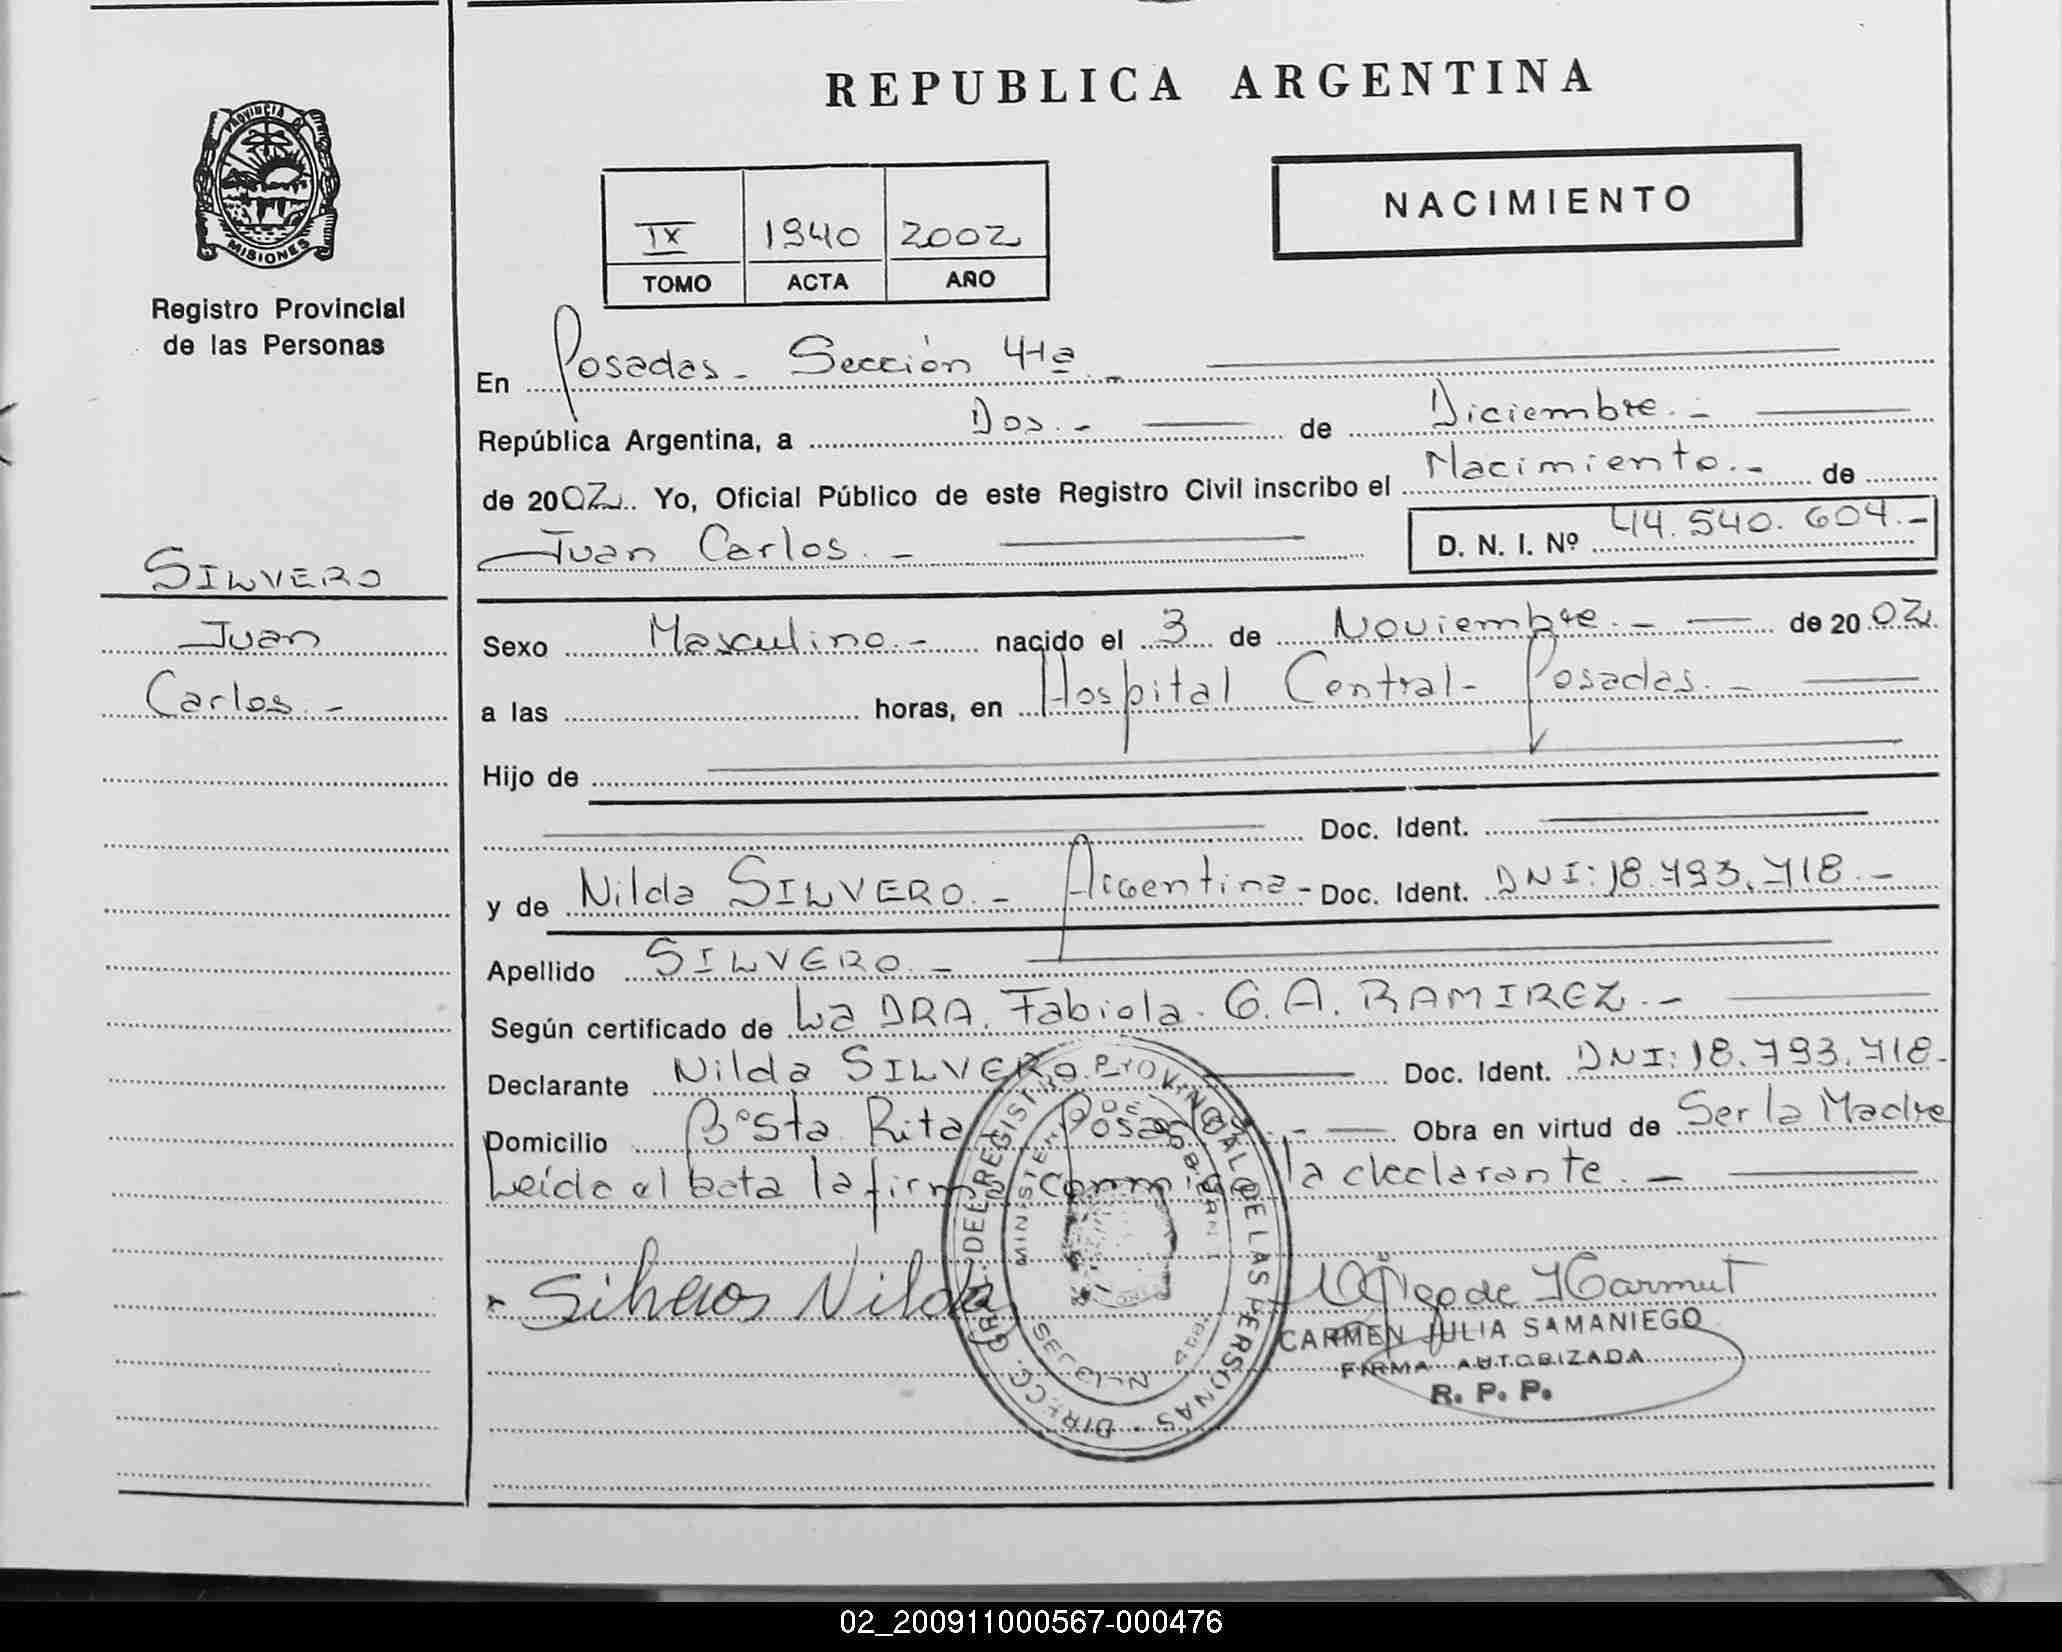 REPUBLICA ARGENTINA
PROVINCIA DE
MISIONES
Registro Provincial
de las Personas
NACIMIENTO
IX 1940 2002
TOMO ACTA AÑO
En Posadas - Sección 4ta.-
República Argentina, a Dos.- de Diciembre.-
de 2002. Yo, Oficial Público de este Registro Civil inscribo el Nacimiento.- de
Juan Carlos.- D. N. I. Nº 44.540.604.-
SILVERO
Juan
Carlos.-
Sexo Masculino.- nacido el 3 de Noviembre.- de 2002.
a las horas, en Hospital Central - Posadas.-
Hijo de
Doc. Ident.
y de Nilda SILVERO.- Argentina - Doc. Ident. DNI: 18.793.718.-
Apellido SILVERO.-
Según certificado de La DRA. Fabiola. G. A. RAMIREZ.-
Declarante Nilda SILVERO. Doc. Ident. DNI: 18.793.718.-
Domicilio Bº Sta. Rita Posadas.- Obra en virtud de Ser la Madre
Leída el acta la firma conmigo la declarante.-
Nilda
CARMEN JULIA SAMANIEGO
FIRMA AUTORIZADA
R. P. P.
DIREC. GRAL. DEL REGISTRO PROVINCIAL DE LAS PERSONAS
MINISTERIO DE GOBIERNO
SECCION 4ta.
02_200911000567-000476